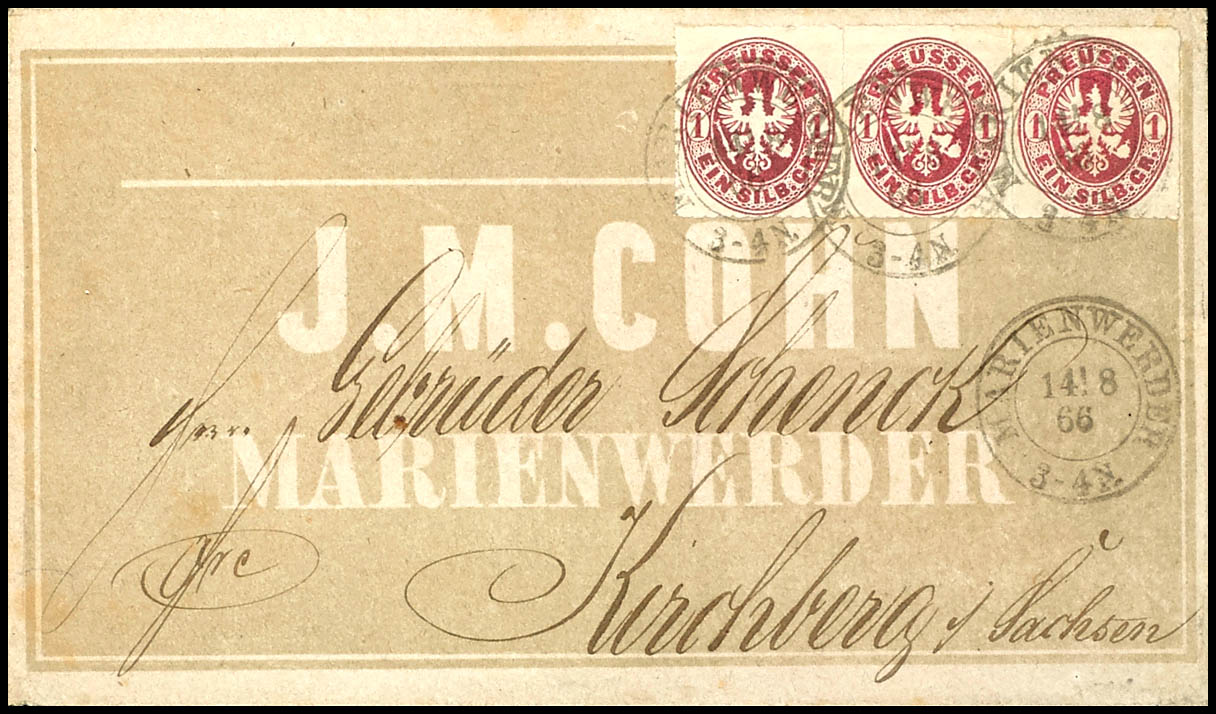 PREUSSEN 1 1 EIN SILB. GR.
PREUSSEN 1 1 EIN SILB. GR.
PREUSSEN 1 1 EIN SILB. GR.
3-4N.
3-4N.
3-4N.
J.M.COHN
MARIENWERDER
14 8
66
3-4N.
Gebrüder Schenck
MARIENWERDER
frc
Kirchberg i/ Sachsen